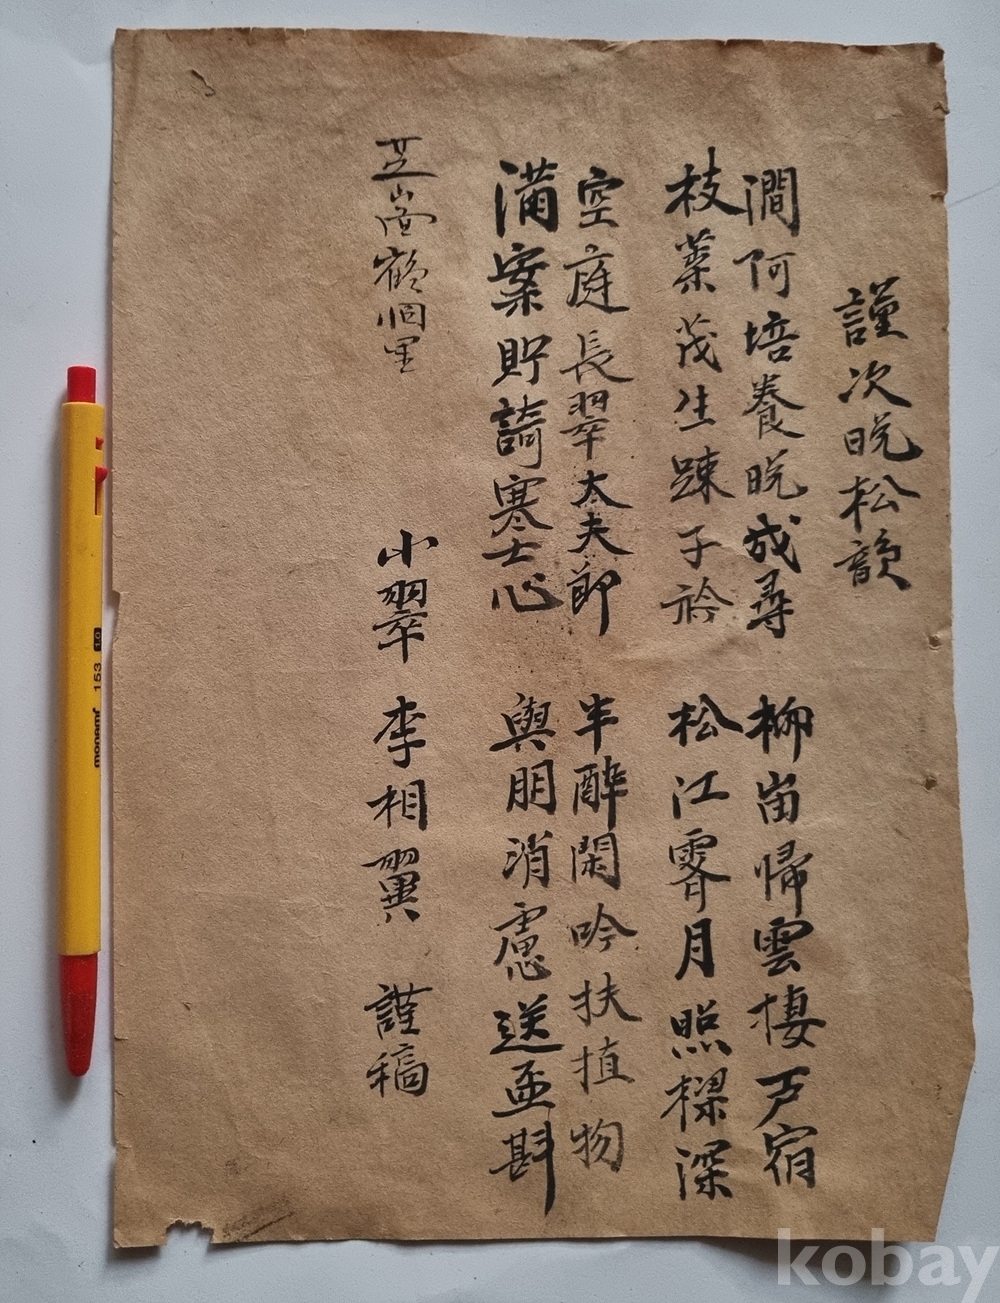 謹次晩松韻
澗阿培養晩成尋 柳畄帰雲棲戸宿
枝葉茂生踈子衿 松江霽月照樑深
空庭長翠太夫節 半醉閑吟扶植物
滿案貯詩寒士心 與朋消慮送盃斟
芝 鶴 里 小翠 李相翼 謹稿
monami 153 1.0
kobay